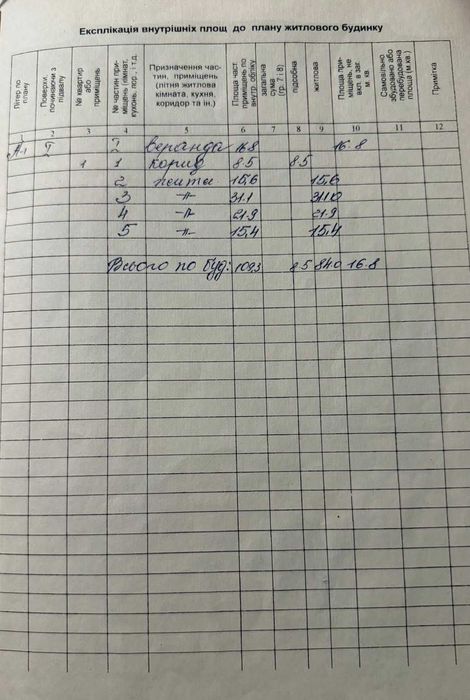 Експлікація внутрішніх площ до плану житлового будинку
Літер по плану
Поверхи, починаючи з підвалу
№ квартир або приміщень
№ частин приміщень (кімнат, кухонь, пор., і т.д.
Призначення частин, приміщень (пітня житлова кімната, кухня, коридор та ін.)
Площа част. приміщень по внутр. обліку
загальна сума (гр. 7 і 8)
підсобна
житлова
Площа приміщень, не вкл. в заг. м. кв.
Самовільно збудована або перебудована площа (м.кв.)
Примітка
1 2 3 4 5 6 7 8 9 10 11 12
А-1 I I веранда 16.8 16.8
1 1 корид 8.5 8.5
2 житл 15,6 15,6
3 -//- 31.1 31.1
4 -//- 21.9 21.9
5 -//- 15,4 15,4
Всього по буд: 8.5 84.0 16.8